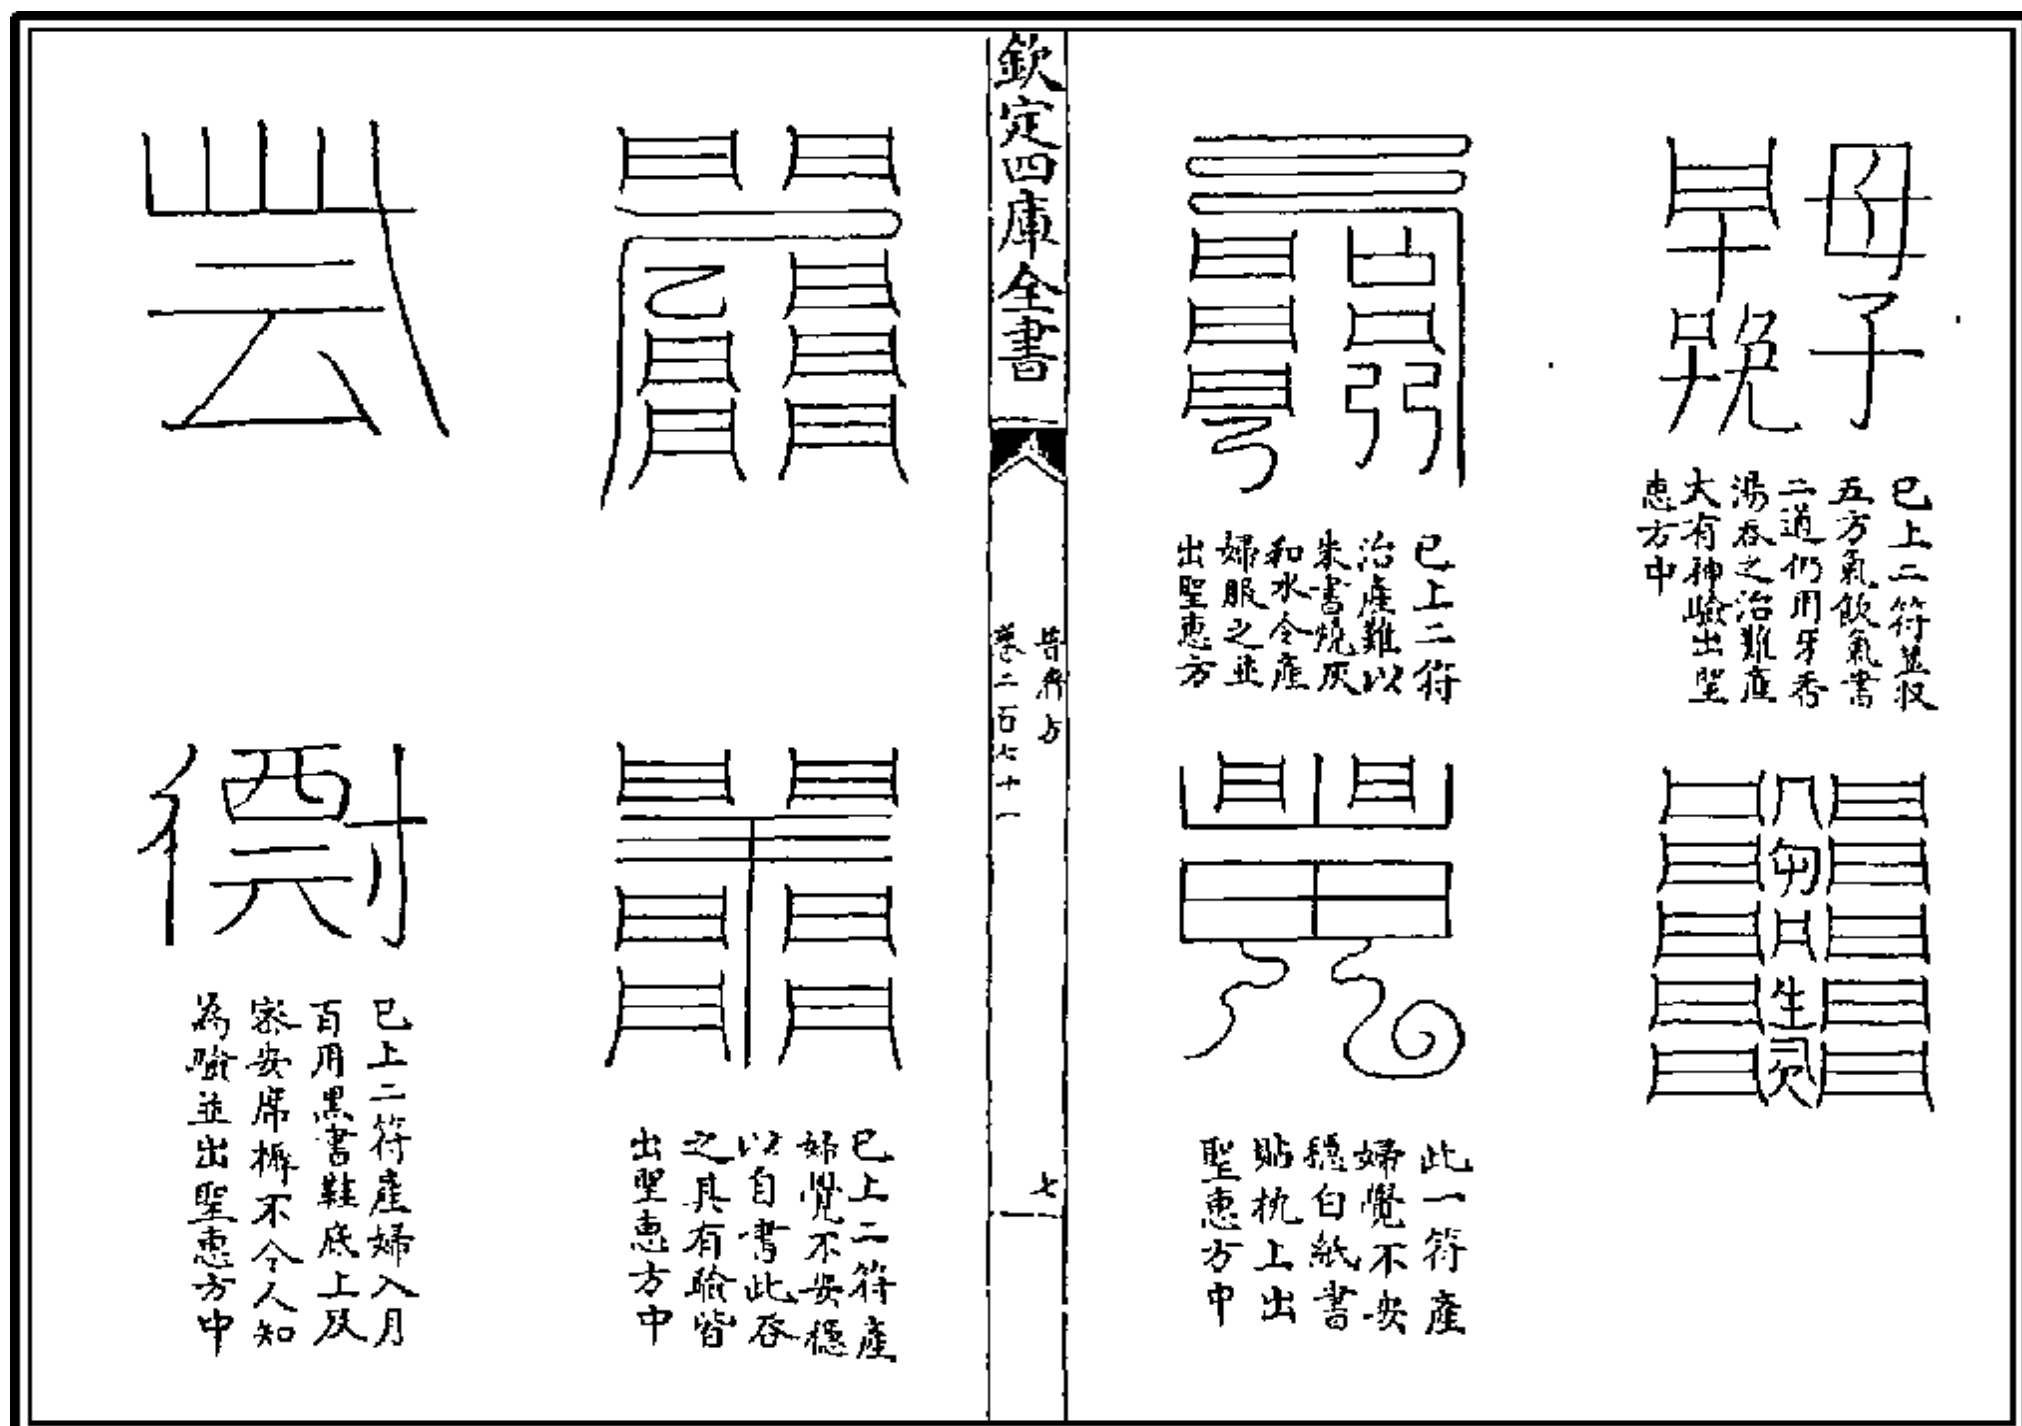 母子
早娩
已上二符並収
五方氣飲氣書
二道仍用牙香
湯吞之治難產
大有神驗出聖
惠方中
已上二符
治產難以
朱書燒灰
和水令產
婦服之並
出聖惠方
此一符產
婦覺不安
穩白紙書
貼枕上出
聖惠方中
欽定四庫全書
普濟方
卷二百七十一
七
已上二符產
婦覺不安穩
以自書此吞
之具有驗皆
出聖惠方中
已上二符產婦入月
百用黑書鞋底上及
家安席褥不令人知
為驗並出聖惠方中